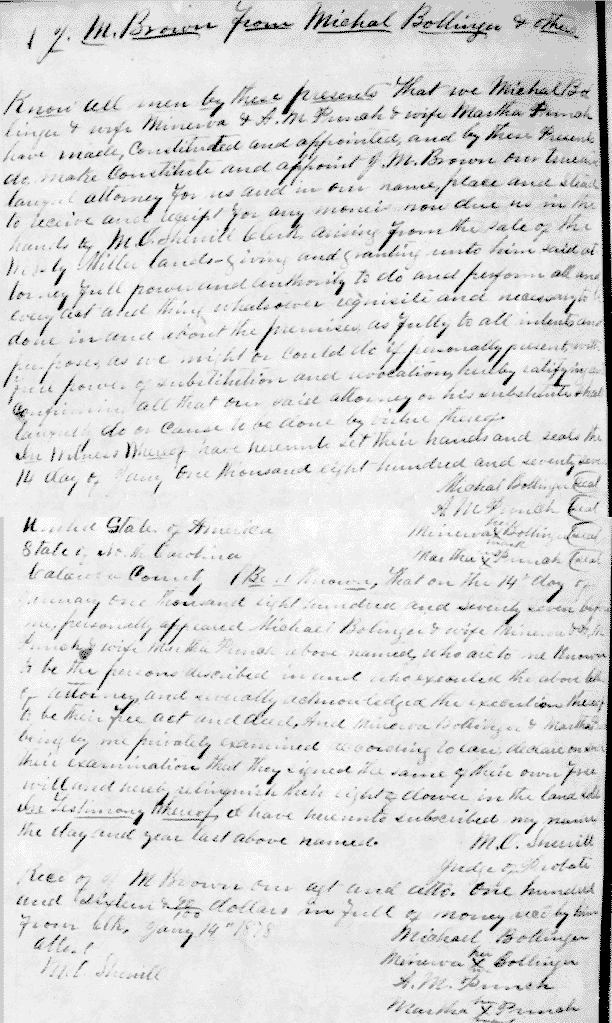 J. M. Brown From Michal Bollinger & other
Know all men by these presents That we Michal Bol
linger & wife Minerva & A. M Punch & wife Martha Punch
have made, Constituted and appointed, and by these Presents
do make Constitute and appoint J. M. Brown our true and
lawful attorney for us and in our name, place and stead
to receive and receipt for any moneis now due us in the
hands of M. O. Sherrill Clerk arising from the sale of the
Miller lands - giving and granting unto him said at
torney full power and authority to do and perform all and
every act and thing whatsoever requisite and necessary to be
done in and about the premises, as fully to all intents and
purposes, as we might or could do if personally present, with
full power of substitution and revocation, hereby ratifying and
confirming all that our said attorney or his substitute shall
lawfully do or cause to be done by virtue thereof.
In Witness Whereof have hereunto set their hands and seals the
14 day of Jany One thousand eight hundred and seventy seven
Michal Bollinger (seal
A. M Punch (seal
United State of America
Minerva X Bollinger (seal
her mark
State of North Carolina
Martha X Punch (seal
Catawba County Be it Known, That on the 14th day of
January one thousand eight hundred and seventy seven before
me, personally appeared Michael Bolinger & wife Minerva & A. M.
Punch & wife Martha Punch above named, who are to me Known
to be the persons described in and who executed the above letter
of attorney, and severally acknowledged the execution thereof
to be their free act and deed, And Minerva Bollinger & Martha
being by me privately examined according to law, declare on
their examination that they signed the same of their own free
will and hereby relinquish their right of dower in the land
In Testimony thereof, I have hereunto subscribed my name
the day and year last above named.
M. O. Sherrill
Judge of Probate
Rece of J M Brown our agt and atto. One hundred
and Sixteen & /100 dollars in full of money rec by him
from Clk. Jany 14th 1878
Michael Bollinger
Attest
Minerva X Bollinger
her
M. O. Sherrill
A. M. Punch
Martha X Punch